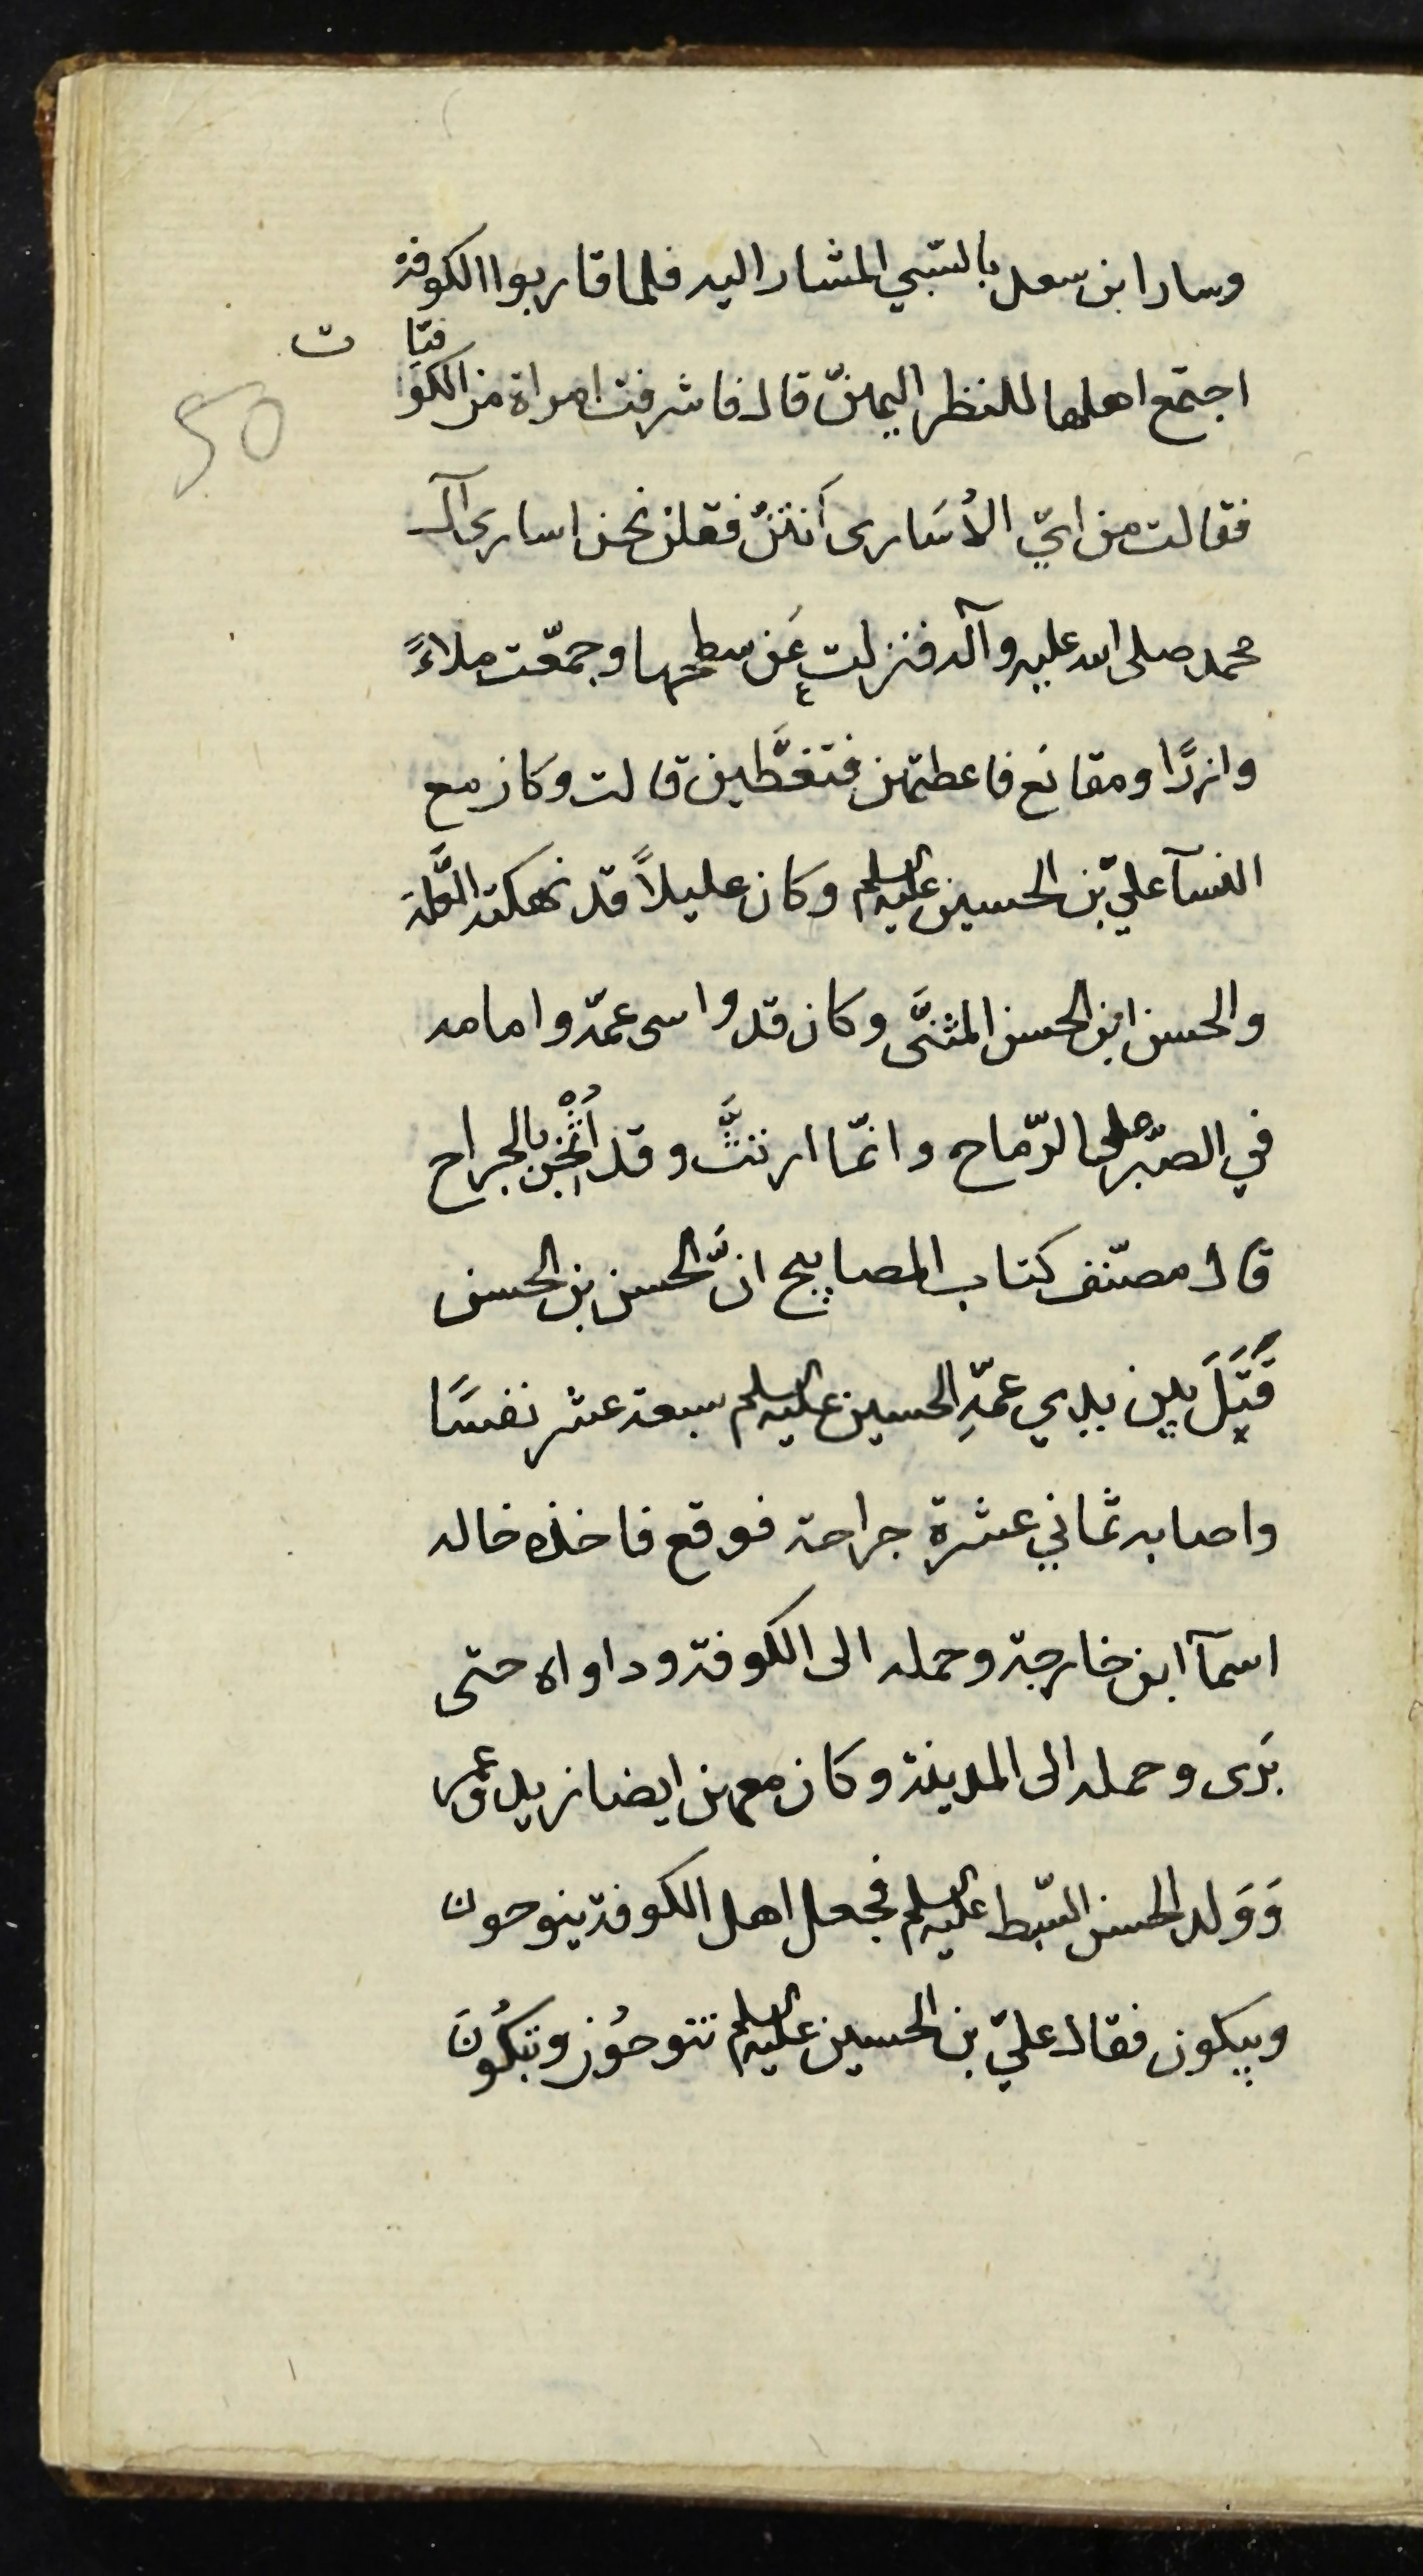 وسار ابن سعد بالسّبي المشار اليه فلما قاربوا الكوفة
اجتمع اهلها للنظر اليهنّ قال فاشرفت امراة من الكوفيّات
50
فقالت من ايّ الأُسَارى أَنتنّ فقلن نحن اسارى آل
محمد صلى الله عليه وآله فنزلت عَن سطحها وجمّعت ملاءً
وازرًا ومقانع فاعطتهن فتغطَّين قالت وكان مع
النسآ عليّ بن الحسين عليه السلم وكان عليلاً قد نهكته العلَّة
والحسن ابن الحسن المثنَّى وكان قد واسى عمّه وامامه
في الصّبر على الرّماح وانّما ارتثَّ وقد أُثْخِن بالجراح
قال مصنّف كتاب المصابيح انَّ الحسن بن الحسن
قَتَلَ بين يدي عمّهِ الحسين عليه السلم سبعة عشر نفسًا
واصابه ثماني عشرة جراحة فوقع فاخذه خاله
اسمآ ابن خارجة وحمله الى الكوفة وداواه حتى
بَرى وحمله الى المدينة وكان معهن ايضا زيد وعمر
وَوَلد الحسن السّبط عليه السلم فجعل اهل الكوفة ينوحون
ويبكون فقال عليّ بن الحسين عليه السلم تنوحُون وتبكُونَ